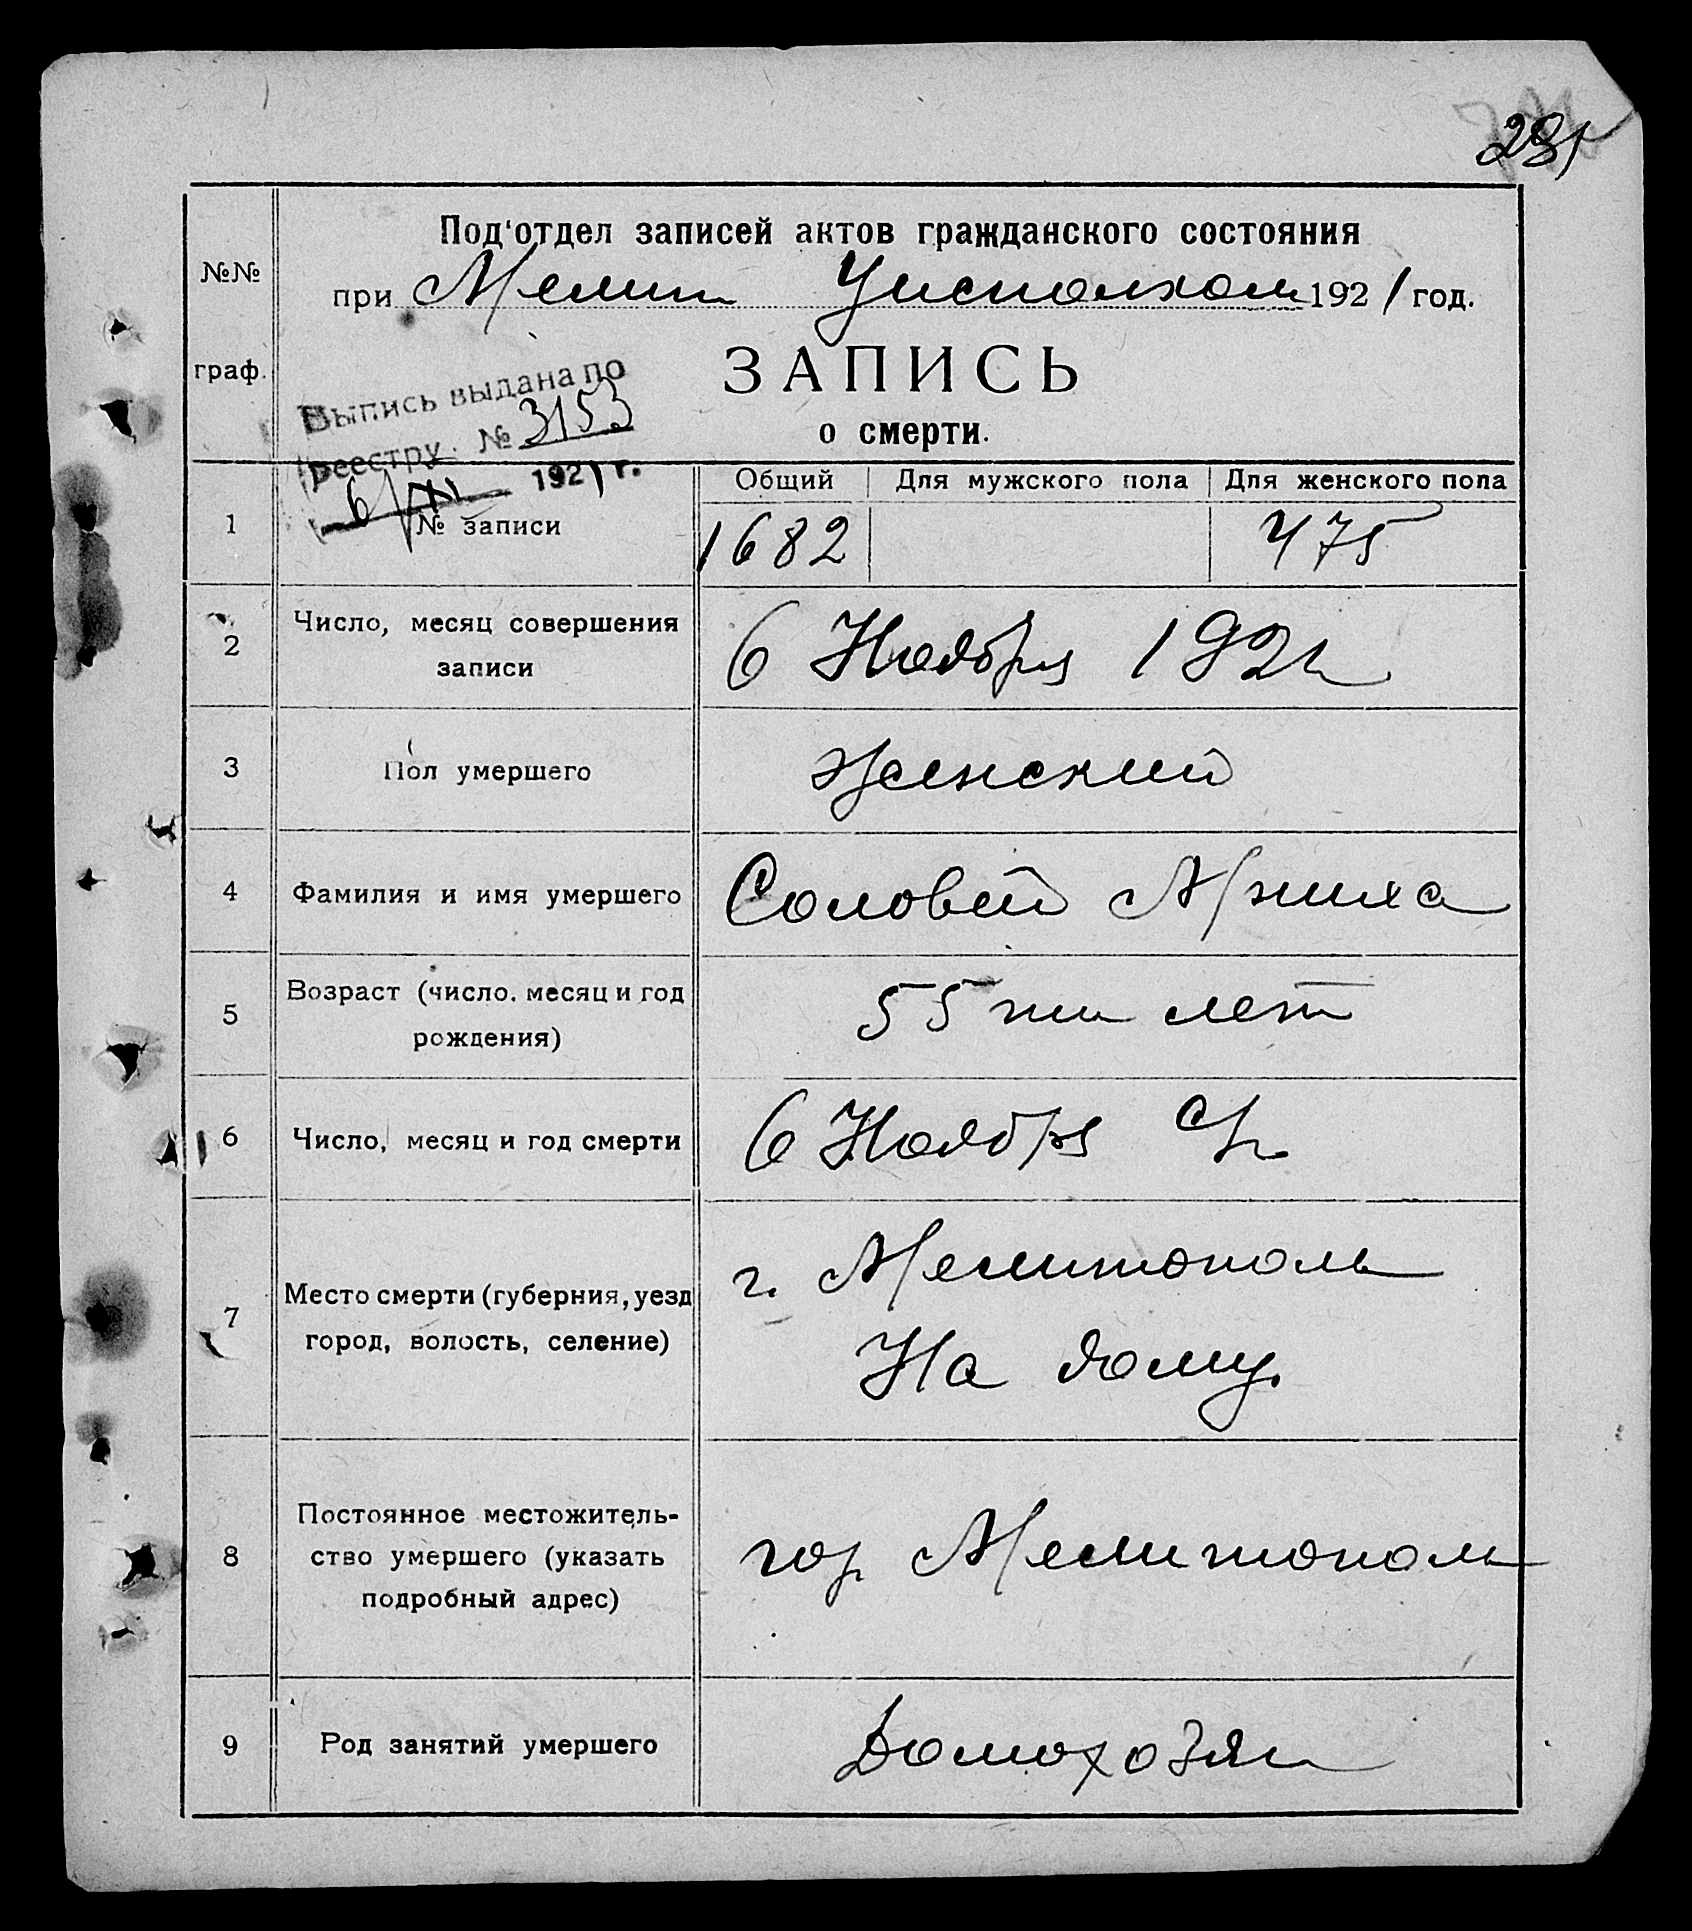 291
Под'отдел записей актов гражданского состояния
№№
при Мелит Уисполком 1921 год.
граф.
ЗАПИСЬ
о смерти.
Выпись выдана по
реестру № 3153
6/XI 1921 г.
Общий Для мужского пола Для женского пола
1 № записи 1682 475
2 Число, месяц совершения
записи
6 Ноября 1921
3 Пол умершего женский
4 Фамилия и имя умершего Соловей
5 Возраст (число, месяц и год
рождения)
55 ти лет
6 Число, месяц и год смерти 6 Ноября с/г
7 Место смерти (губерния, уезд
город, волость, селение)
г. Мелитополь
На дому.
8 Постоянное местожитель-
ство умершего (указать
подробный адрес)
гор Мелитополь
9 Род занятий умершего Домохозяй